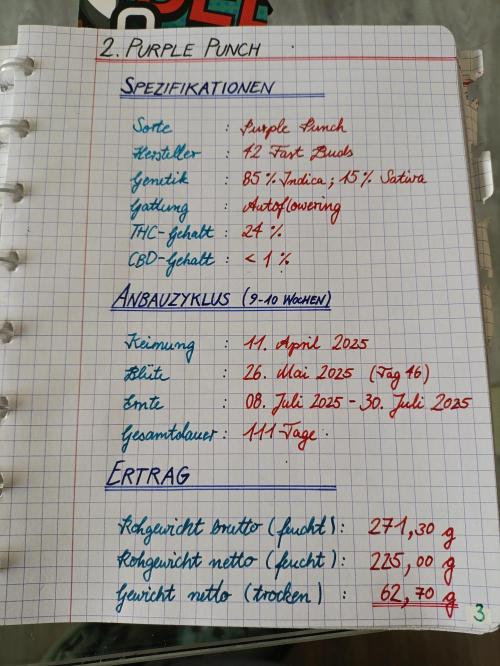 2. PURPLE PUNCH
SPEZIFIKATIONEN
Sorte : Purple Punch
Hersteller : 42 Fast Buds
Genetik : 85 % Indica ; 15 % Sativa
Gattung : Autoflowering
THC-Gehalt : 24 %
CBD-Gehalt : < 1 %
ANBAUZYKLUS (9-10 WOCHEN)
Keimung : 11. April 2025
Blüte : 26. Mai 2025 (Tag 46)
Ernte : 08. Juli 2025 - 30. Juli 2025
Gesamtdauer : 111-Tage
ERTRAG
Rohgewicht brutto (feucht) : 271,30 g
Rohgewicht netto (feucht) : 225,00 g
Gewicht netto (trocken) : 62,70 g
3